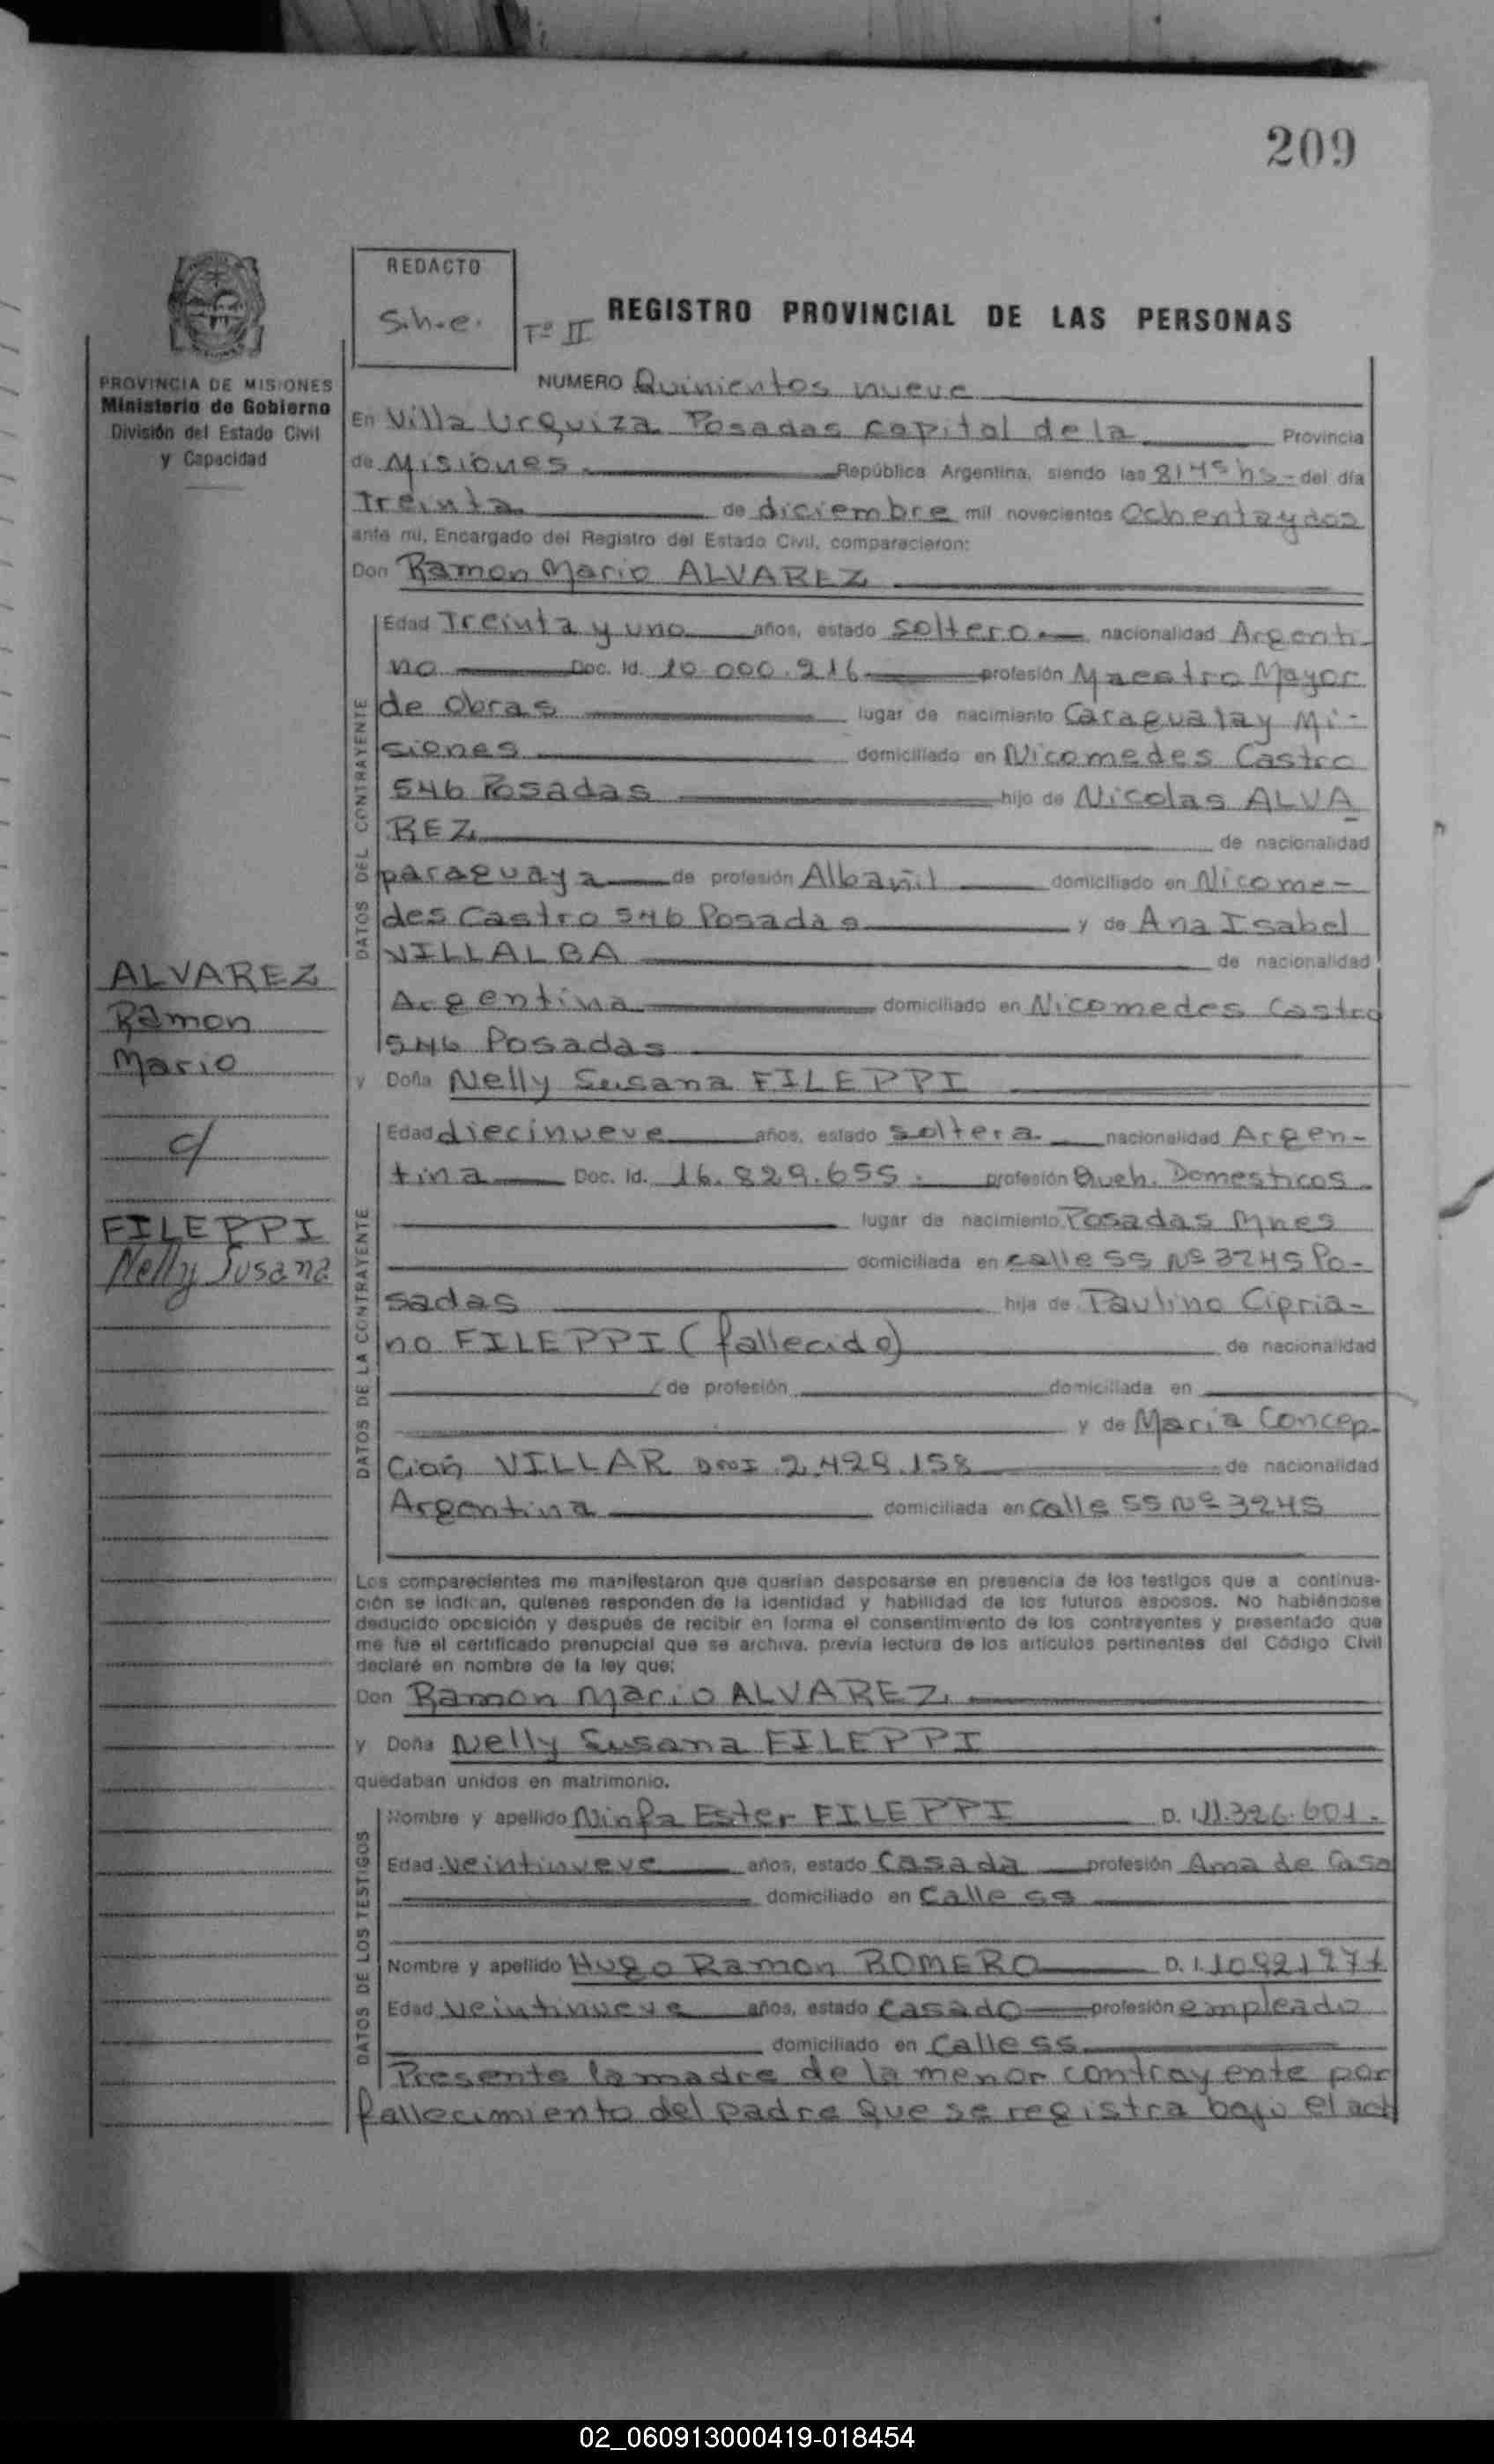 209
REDACTO
S.h.e.
Tº II
REGISTRO PROVINCIAL DE LAS PERSONAS
PROVINCIA DE MISIONES
Ministerio de Gobierno
División del Estado Civil
y Capacidad
NUMERO Quinientos nueve
En Villa Urquiza Posadas capital de la Provincia
de Misiones República Argentina, siendo las 8,45 hs - del día
Treinta de diciembre mil novecientos Ochentaydos
ante mi, Encargado del Registro del Estado Civil, comparecieron:
Don Ramon Mario ALVAREZ
DATOS DEL CONTRAYENTE
Edad Treinta y uno años, estado soltero nacionalidad Argenti-
no Doc. Id. 10.000.216 profesión Maestro Mayor
de Obras lugar de nacimiento Caraguatay Mi-
siones domiciliado en Nicomedes Castro
546 Posadas hijo de Nicolas ALVA
REZ de nacionalidad
paraguaya de profesión Albañil domiciliado en Nicome-
des Castro 546 Posadas y de Ana Isabel
VILLALBA de nacionalidad
Argentina domiciliado en Nicomedes Castro
546 Posadas
y Doña Nelly Susana FILEPPI
ALVAREZ
Ramon
Mario
c/
FILEPPI
Nelly Susana
DATOS DE LA CONTRAYENTE
Edad diecinueve años, estado soltera nacionalidad Argen-
tina Doc. Id. 16.829.655. profesión Queh. Domesticos
lugar de nacimiento Posadas Mnes
domiciliada en calle 55 Nº 3245 Po-
sadas hija de Paulino Cipria-
no FILEPPI (fallecido) de nacionalidad
de profesión domiciliada en
y de Maria Concep-
cion VILLAR DNI 2.429.158 de nacionalidad
Argentina domiciliada en calle 55 Nº 3245
Los comparecientes me manifestaron que querían desposarse en presencia de los testigos que a continua-
ción se indican, quienes responden de la identidad y habilidad de los futuros esposos. No habiéndose
deducido oposición y después de recibir en forma el consentimiento de los contrayentes y presentado que
me fue el certificado prenupcial que se archiva, previa lectura de los artículos pertinentes del Código Civil
declaré en nombre de la ley que:
Don Ramon Mario ALVAREZ
y Doña Nelly Susana FILEPPI
quedaban unidos en matrimonio.
DATOS DE LOS TESTIGOS
Nombre y apellido Ninfa Ester FILEPPI D. I. 11.326.601.
Edad veintinueve años, estado Casada profesión Ama de Casa
domiciliado en Calle 55
Nombre y apellido Hugo Ramon ROMERO D. I. 10921277
Edad veintinueve años, estado casado profesión empleado
domiciliado en Calle 55
Presente la madre de la menor contrayente por
fallecimiento del padre que se registra bajo el act
02_060913000419-018454